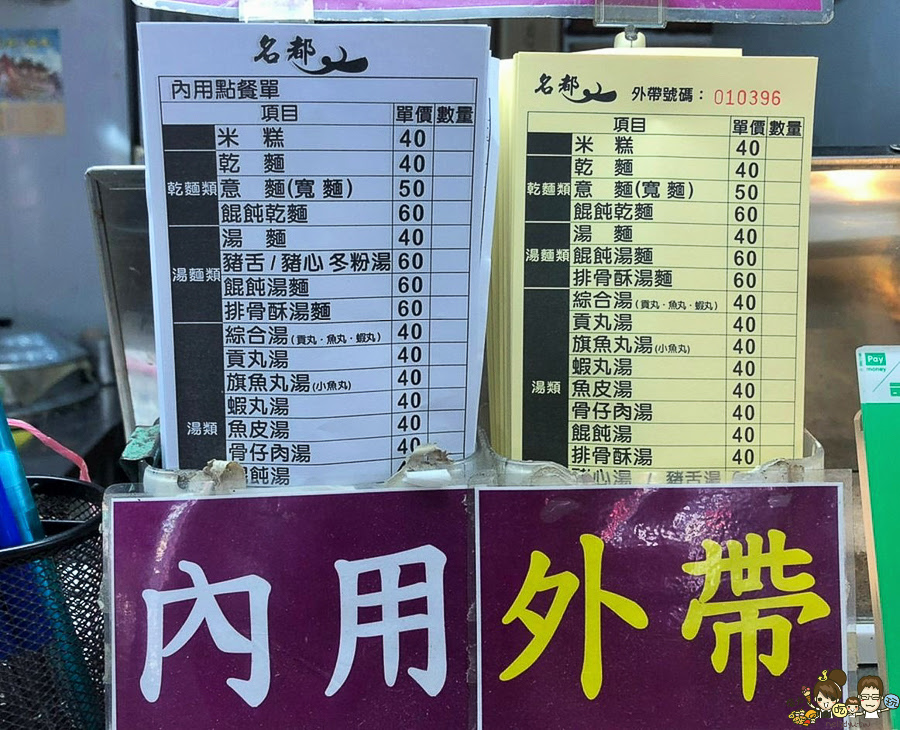 名都
內用點餐單
項目 單價 數量
米 糕 40
乾麵類
乾 麵 40
意 麵(寬 麵) 50
餛飩乾麵 60
湯麵類
湯 麵 40
豬舌/豬心 冬粉湯 60
餛飩湯麵 60
排骨酥湯麵 60
湯類
綜合湯(貢丸·魚丸·蝦丸) 40
貢丸湯 40
旗魚丸湯(小魚丸) 40
蝦丸湯 40
魚皮湯 40
骨仔肉湯 40
飩湯
名都
外帶號碼: 010396
項目 單價 數量
米 糕 40
乾麵類
乾 麵 40
意 麵(寬 麵) 50
餛飩乾麵 60
湯麵類
湯 麵 40
餛飩湯麵 60
排骨酥湯麵 60
湯類
綜合湯(貢丸·魚丸·蝦丸) 40
貢丸湯 40
旗魚丸湯(小魚丸) 40
蝦丸湯 40
魚皮湯 40
骨仔肉湯 40
餛飩湯 40
排骨酥湯 40
豬心湯 / 豬舌湯
內用
外帶
Pay
money